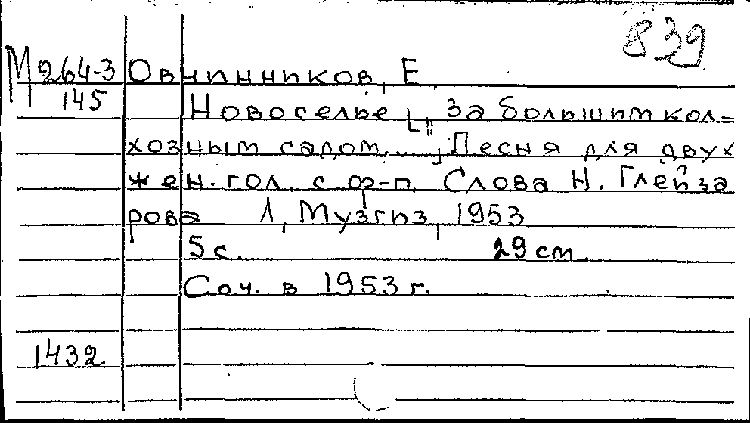 839
М 264-3 Овчинников, Е.
145 Новоселье [„За большим кол=
хозным садом..."] Песня для двух
жен. гол. с ф-п. Слова Н. Глейза
рова Л., Музгиз, 1953
5 с. 29 см
Соч. в 1953 г.
1432